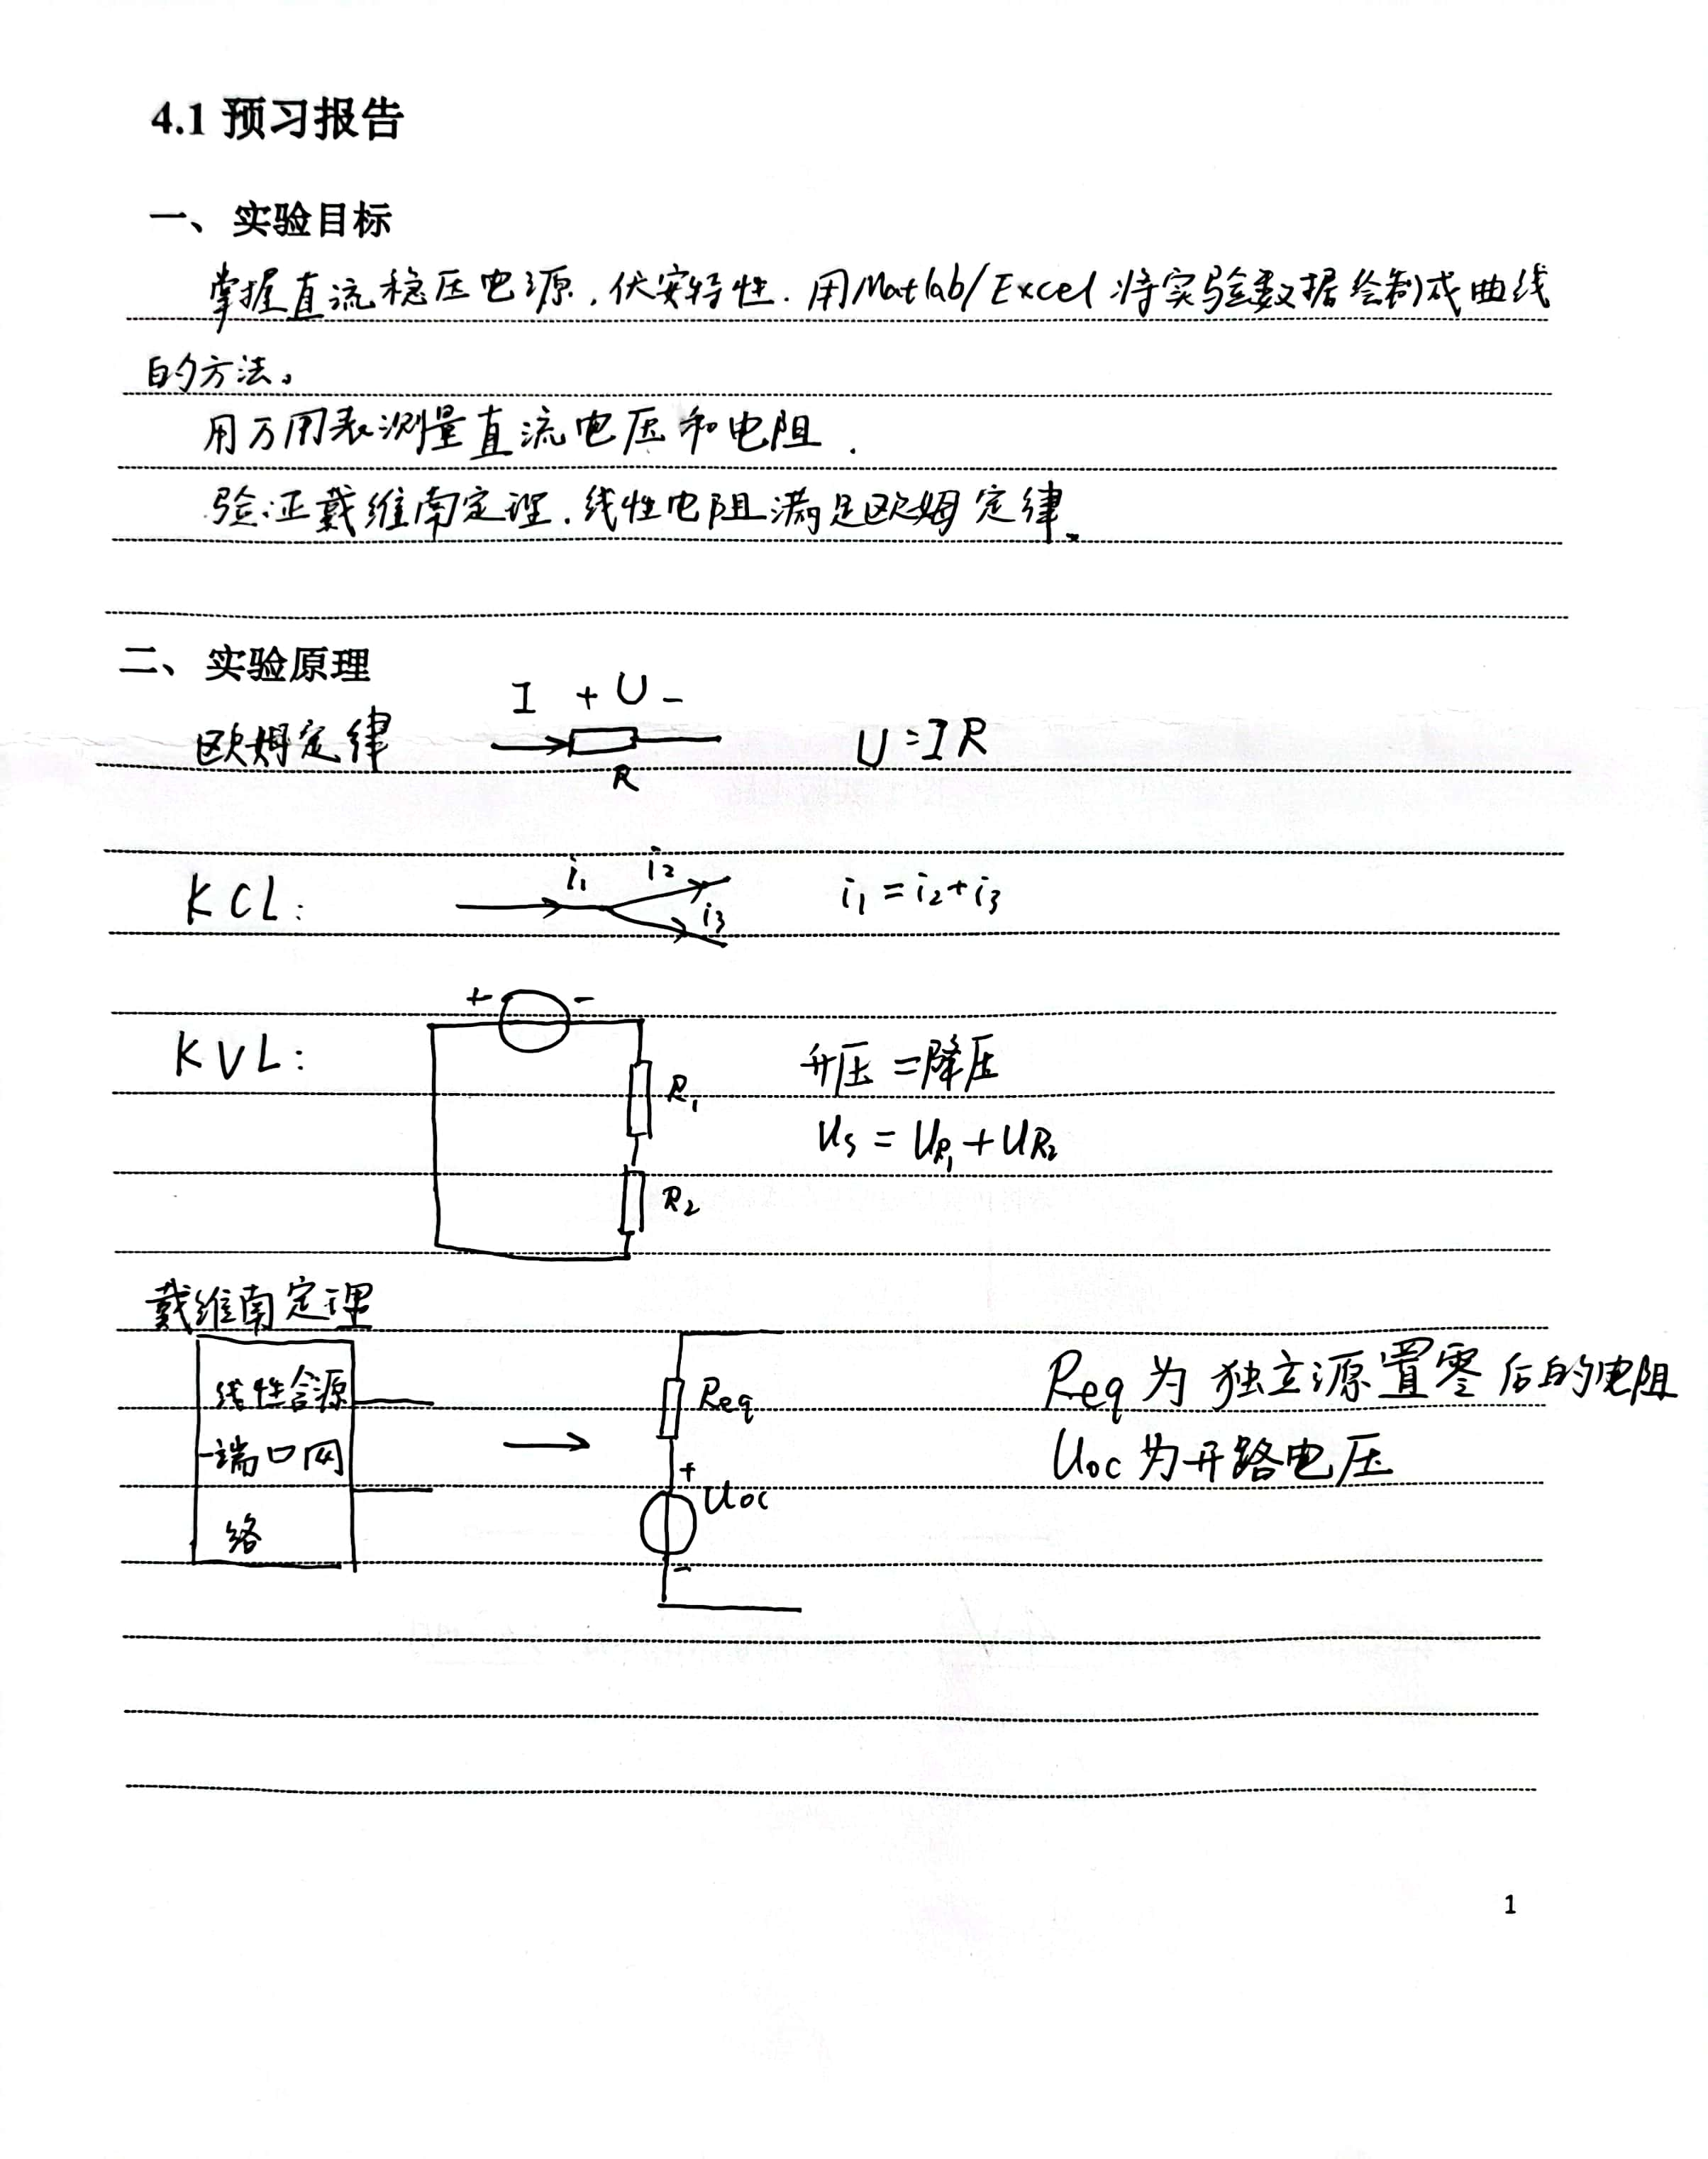 4.1 预习报告
一、 实验目标
掌握直流稳压电源,伏安特性.用Matlab/Excel将实验数据绘制成曲线
的方法。
用万用表测量直流电压和电阻.
验证戴维南定理.线性电阻满足欧姆定律.
二、 实验原理
I + U -
欧姆定律
R
U=IR
KCL:
i₁
i₂
i₃
i₁=i₂+i₃
+ -
KVL:
R₁
R₂
升压=降压
Us=UR₁+UR₂
戴维南定理
线性含源
一端口网
络
Req
+
Uoc
-
Req为独立源置零后的电阻
Uoc为开路电压
1